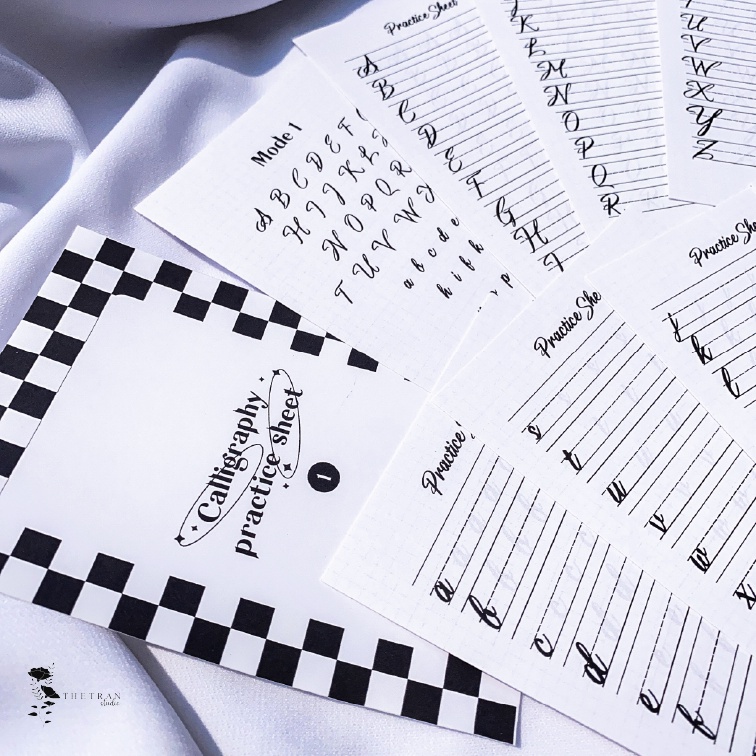 Practice Sheet
A
B
C
D
E
F
G
H
I
K
L
M
N
O
P
Q
R
U
V
W
X
Y
Z
Mode 1
A B C D E F
H I J K L
N O P Q R
T U V W
a b c d e
h i
p
Calligraphy
practice sheet
1
Practice
a
b
c
d
e
f
Practice She
s
t
u
v
w
x
Practice She
j
k
l
THETRAN
studio